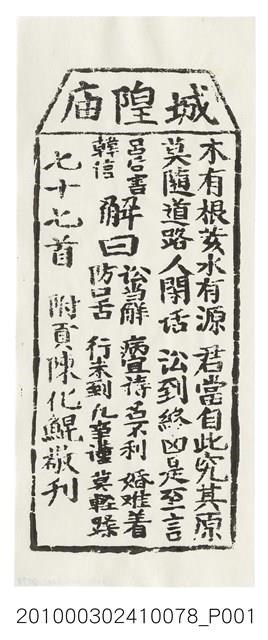 城隍庙
木有根荄水有源 君當自此究其原
莫隨道路人閒話 訟到終凶是至言
呂后害
韓信
解曰
訟宜解 病宜祷 名不利 婚难着
防口舌 行未到 凡事謹 莫輕躁
七十七首 附頁陳化鯤敬刊
201000302410078_P001